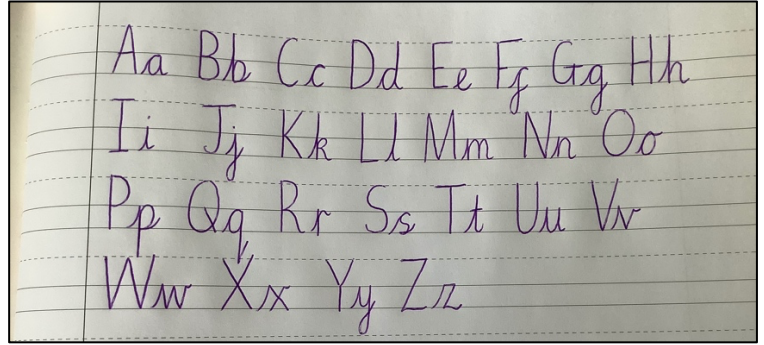 Aa Bb Cc Dd Ee Ff Gg Hh
Ii Jj Kk Ll Mm Nn Oo
Pp Qq Rr Ss Tt Uu Vv
Ww Xx Yy Zz